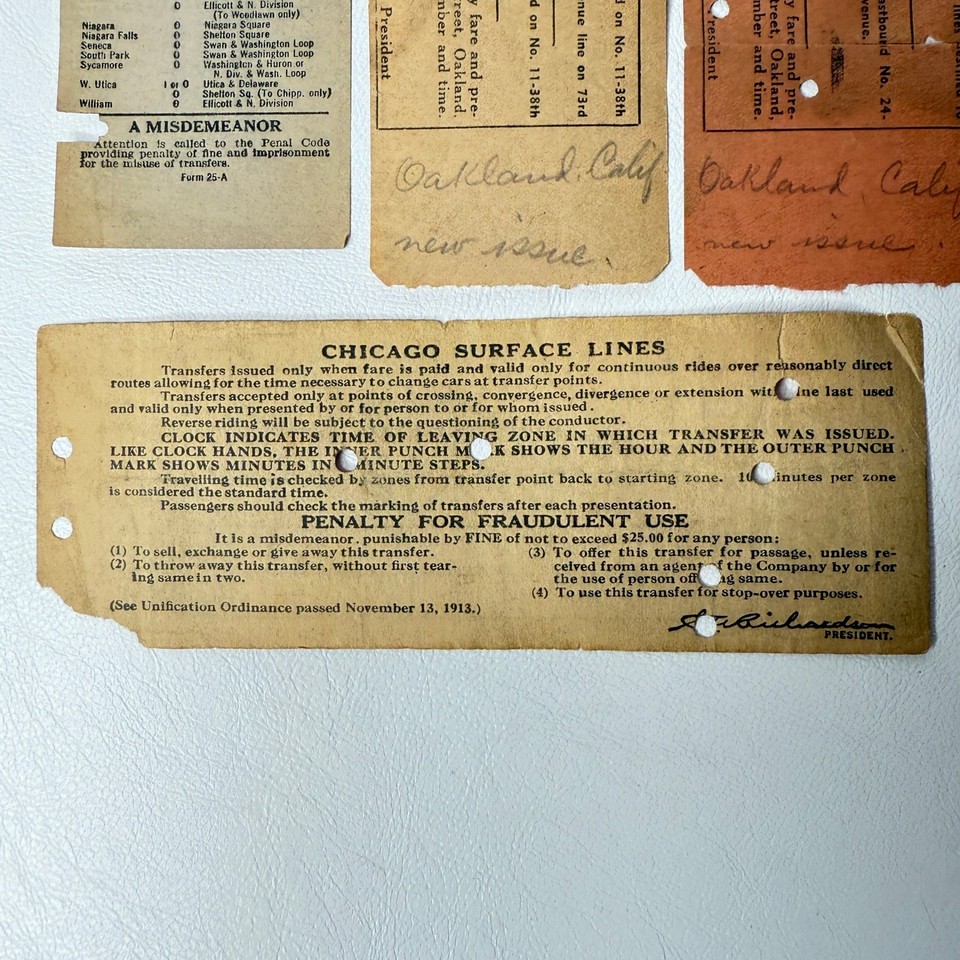 0 Ellicott & N. Division
(To Woodlawn only)
Niagara 0 Niagara Square
Niagara Falls 0 Shelton Square
Seneca 0 Swan & Washington Loop
South Park 0 Swan & Washington Loop
Sycamore 0 Washington & Huron or
N. Div. & Wash. Loop
W. Utica 1 or 0 Utica & Delaware
0 Shelton Sq. (To Chipp. only)
William 0 Ellicott & N. Division
A MISDEMEANOR
Attention is called to the Penal Code
providing penalty of fine and imprisonment
for the misuse of transfers.
Form 25-A
d on No. 11-38th
nue line on 73rd
d on No. 11-38th
y fare and pre-
treet, Oakland,
mber and time.
President
Oakland. Calif
new issue.
astbound No. 24-
venue.
y fare and pre-
treet, Oakland,
mber and time.
resident
Oakland Calif
new issue.
CHICAGO SURFACE LINES
Transfers issued only when fare is paid and valid only for continuous rides over reasonably direct
routes allowing for the time necessary to change cars at transfer points.
Transfers accepted only at points of crossing, convergence, divergence or extension with ine last used
and valid only when presented by or for person to or for whom issued.
Reverse riding will be subject to the questioning of the conductor.
CLOCK INDICATES TIME OF LEAVING ZONE IN WHICH TRANSFER WAS ISSUED.
LIKE CLOCK HANDS, THE INNER PUNCH MARK SHOWS THE HOUR AND THE OUTER PUNCH
MARK SHOWS MINUTES IN MINUTE STEPS.
Travelling time is checked by zones from transfer point back to starting zone. 10 minutes per zone
is considered the standard time.
Passengers should check the marking of transfers after each presentation.
PENALTY FOR FRAUDULENT USE
It is a misdemeanor, punishable by FINE of not to exceed $25.00 for any person:
(1) To sell, exchange or give away this transfer.
(2) To throw away this transfer, without first tear-
ing same in two.
(3) To offer this transfer for passage, unless re-
ceived from an agent of the Company by or for
the use of person offering same.
(4) To use this transfer for stop-over purposes.
(See Unification Ordinance passed November 13, 1913.)
Richardson
PRESIDENT.